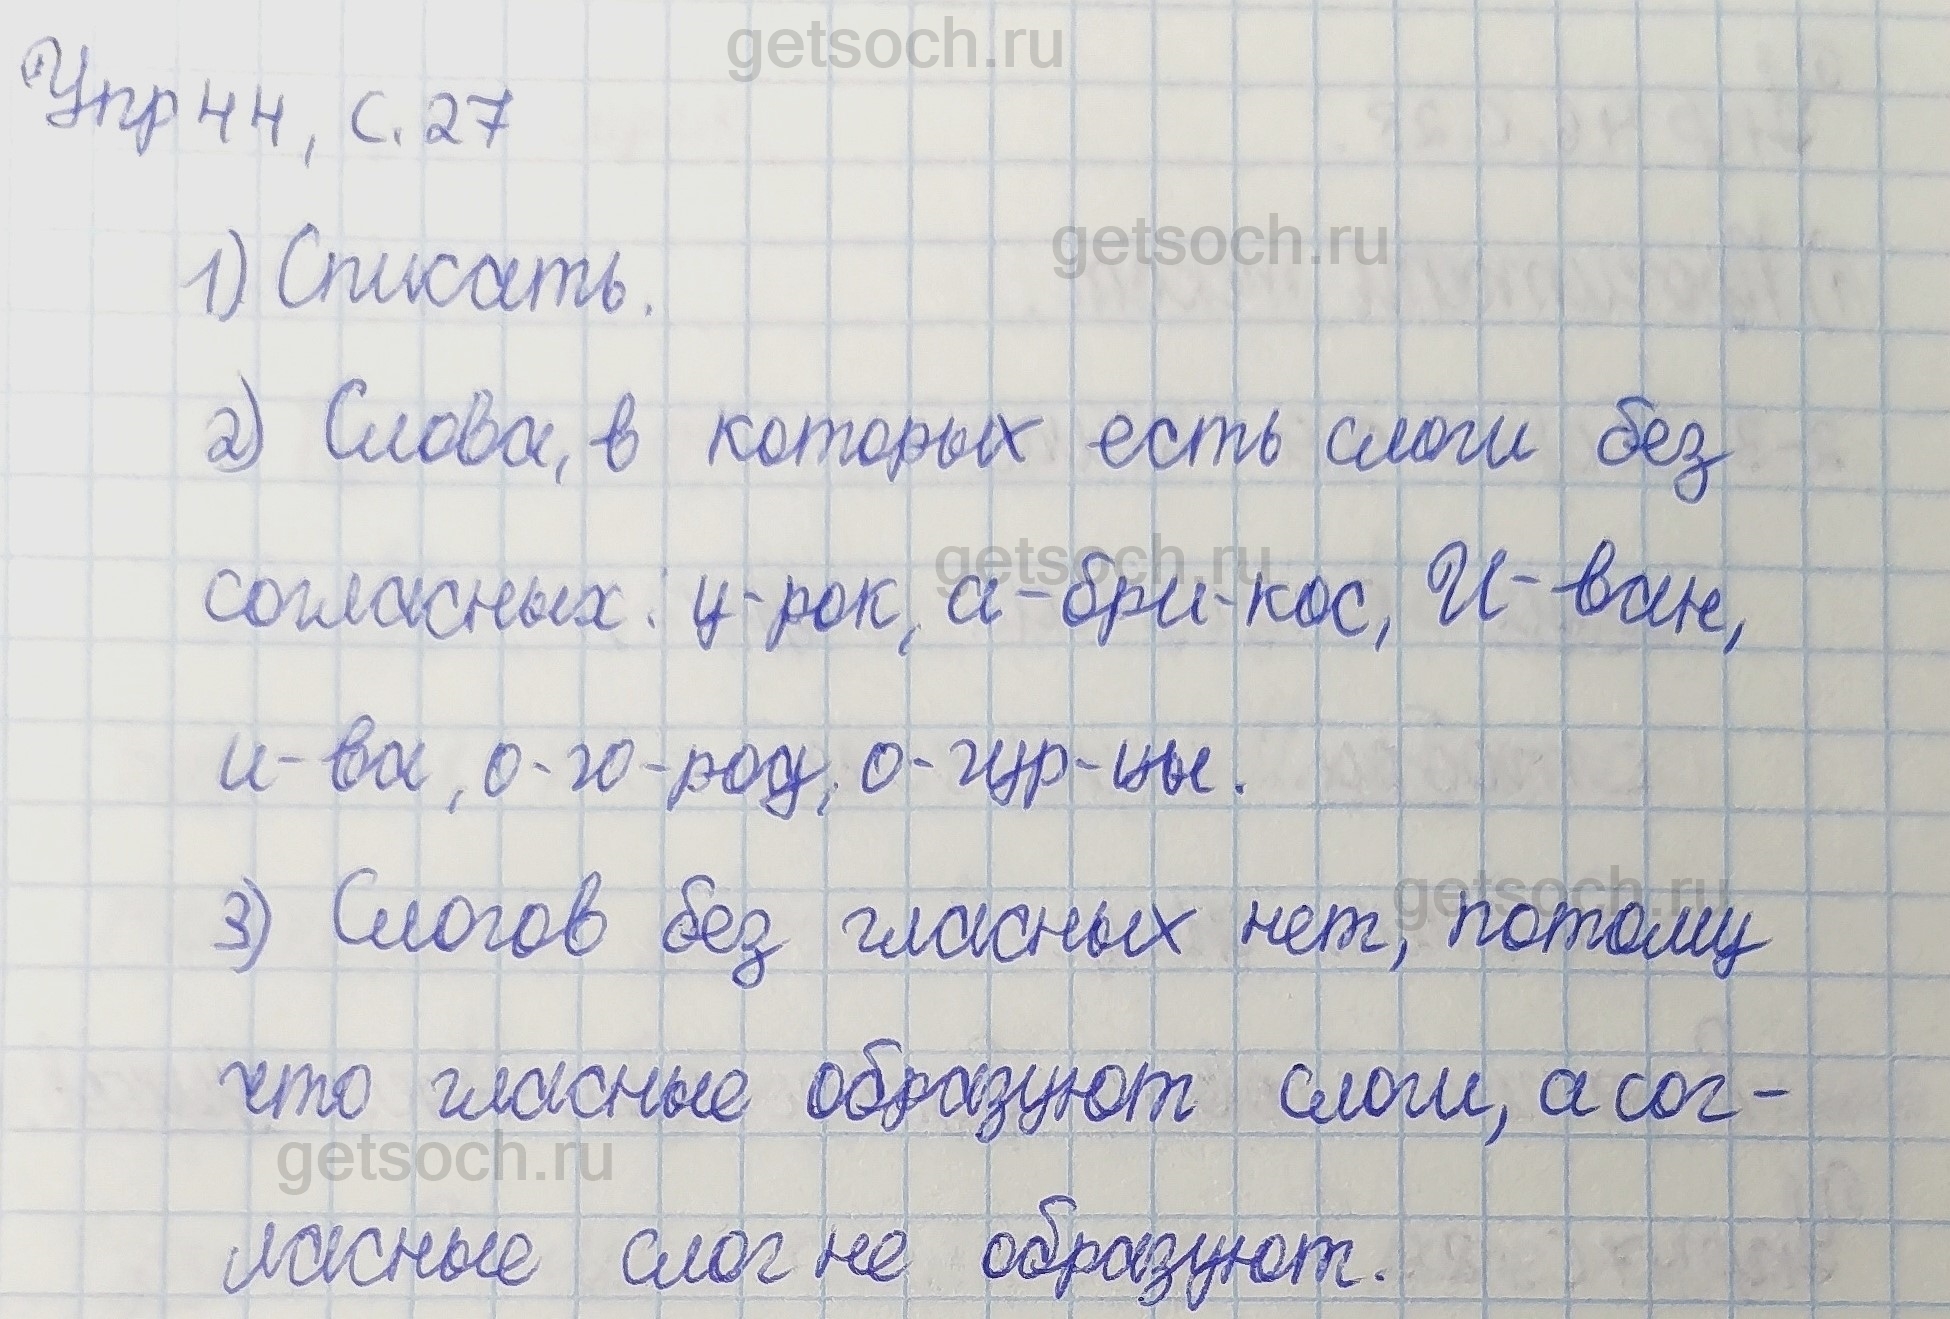 getsoch.ru
Упр 44, с. 27
getsoch.ru
1) Списать.
2) Слова, в которых есть слоги без
getsoch.ru
согласных: у-рок, а-бри-кос, И-ван,
и-ва, о-го-род, о-гур-цы.
getsoch.ru
3) Слогов без гласных нет, потому
что гласные образуют слоги, а сог-
getsoch.ru
ласные слог не образуют.